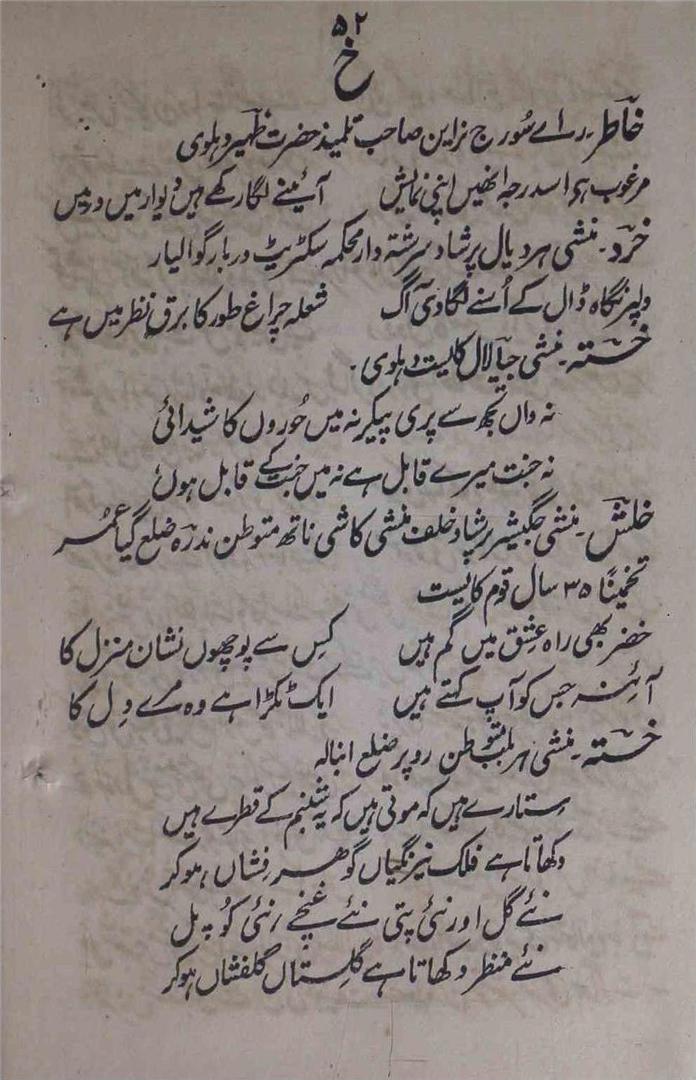 ۵۲
خ
خاطر۔ راے سورج نراین صاحب تلمیذ حضرت ظہیر دہلوی
مرغوب ہوا سدرجہ انھیں اپنی نمایش آئینے لگا رکھے ہیں دیوار میں در میں
خرد۔ منشی ہر دیال پرشاد سررشتہ دار محکمہ سکٹریٹ دربار گوالیار
دلپر نگاہ ڈال کے اُسنے لگا دی آگ شعلہ چراغ طور کا برق نظر میں ہے
خستہ۔ منشی جیالال کایست دہلوی۔
نہ واں تجھ سے پری پیکر نہ میں حُوروں کا شیدائی
نہ جنت میرے قابل ہے نہ میں جنت کے قابل ہوں
خلش۔ منشی جگیشر پرشاد خلف منشی کاشی ناتھ متوطن ندرہ ضلع گیا عمر
تخمیناً ۳۵ سال قوم کایست
خضر بھی راہ عشق میں گم ہیں کس سے پوچھوں نشان منزل کا
آئنہ جس کو آپ کہتے ہیں ایک ٹکڑا ہے وہ مرے دِل کا
خستہ۔ منشی ہر بلب متوطن روپر ضلع انبالہ
ستارے ہیں کہ موتی ہیں کہ یہ شبنم کے قطرے ہیں
دکھاتا ہے فلک نیرنگیاں گوھر فِشاں ہو کر
نئے گل اور نئی پتی نئے غنچے نئی کوپل
نئے منظر دکھاتا ہے گلِستاں گلفشاں ہو کر